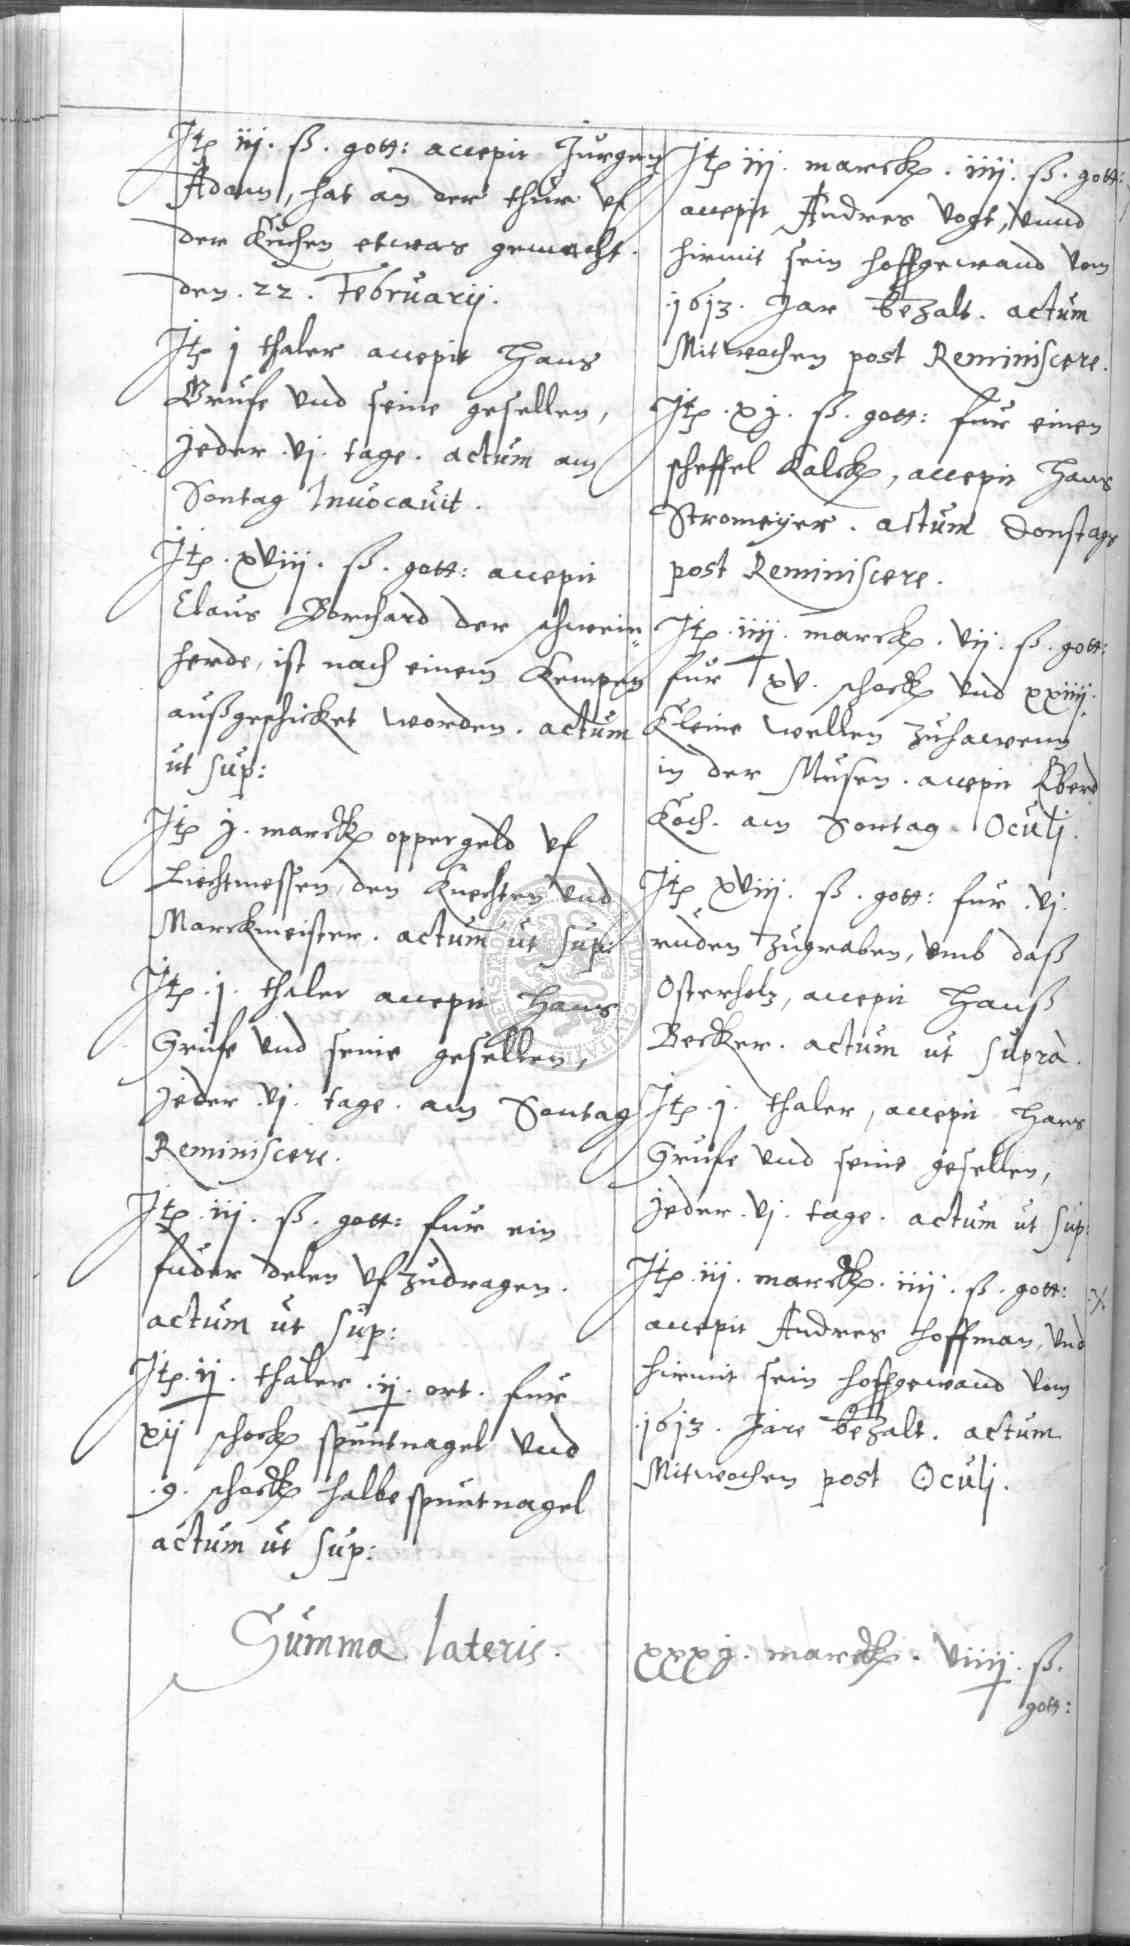 Jtp iij. ß. gott: accepit Jurgen
Adam, hat an der thur vf
der Kuchen etwas gemacht.
den. 22. Februarij.
Jtp j thaler accepit Hans
Grufe vnd seine gesellen,
jeder .vj. tage. actum am
Sontag Inuocauit.
Jtp. xviij. ß. gott: accepit
Claus Borchard der schwein
herde, ist nach einem Kempen
außgeschicket worden. actum
ut sup:
Jtp j. marck oppergeld vf
Liechtmessen, den Knechten vnd
Marckmeister. actum ut sup:
Jtp .j. thaler accepit Hans
Grufe vnd seine gesellen,
jeder .vj. tage. am Sontag
Reminiscere.
Jtp .iij. ß. gott: fur ein
fuder delen vf zudragen.
actum ut sup:
Jtp. ij. thaler .ij. ort. fur
xij schock spuntnagel vnd
.9. schock halbe spuntnagel
actum ut sup:
Summa lateris.
Jtp iij. marck. iiij. ß. gott:
accepit Andres Vogt, vnnd
hirmit sein hoffgewand vom
.1613. Jar bezalt. actum
Mitwochen post Reminiscere.
Jtp. xj. ß. gott: fur einen
scheffel Kalck, accepit Hans
Stromeyer. actum Donstags
post Reminiscere.
Jtp. iiij. marck. vij. ß. gott:
fur xv. schock vnd xxiiij.
Kleine wellen zuhawenn
in der Musen. accepit Eberd
Koch. am Sontag Oculj.
Jtp xviij. ß. gott: fur .vj.
ruden zugraben, vmb daß
Osterholz, accepit Hanß
Becker. actum ut supra.
Jtp .j. thaler, accepit Hans
Grufe vnd seine gesellen,
jeder .vj. tage. actum ut sup:
Jtp. iij. marck. iiij. ß. gott:
accepit Andres Hoffman, vnd
hirmit sein hoffgewand vom
.1613. Jare bezalt. actum
Mitwochen post Oculj.
xxxj. marck. viiij. ß.
gott: